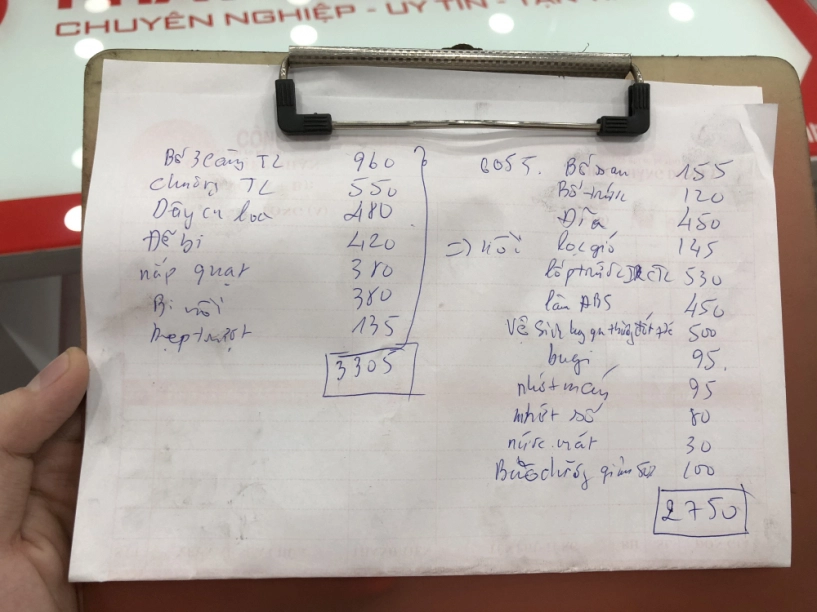 CHUYÊN NGHIỆP - UY TÍN - TẬN
Bố 3 càng TL 960
chuông TL 550
Dây cu loa 480
Đế bi 420
nắp quạt 380
Bi nồi 380
nẹp trượt 135
3305
6055.
=> nồi
Bố sau 155
Bố trước 120
Đĩa 450
lọc gió 145
lốp trước 530
lần ABS 450
Vệ sinh 500
bugi 95.
nhớt máy 95
nhớt số 80
nước mát 30
Bảo dưỡng giảm 100
2750